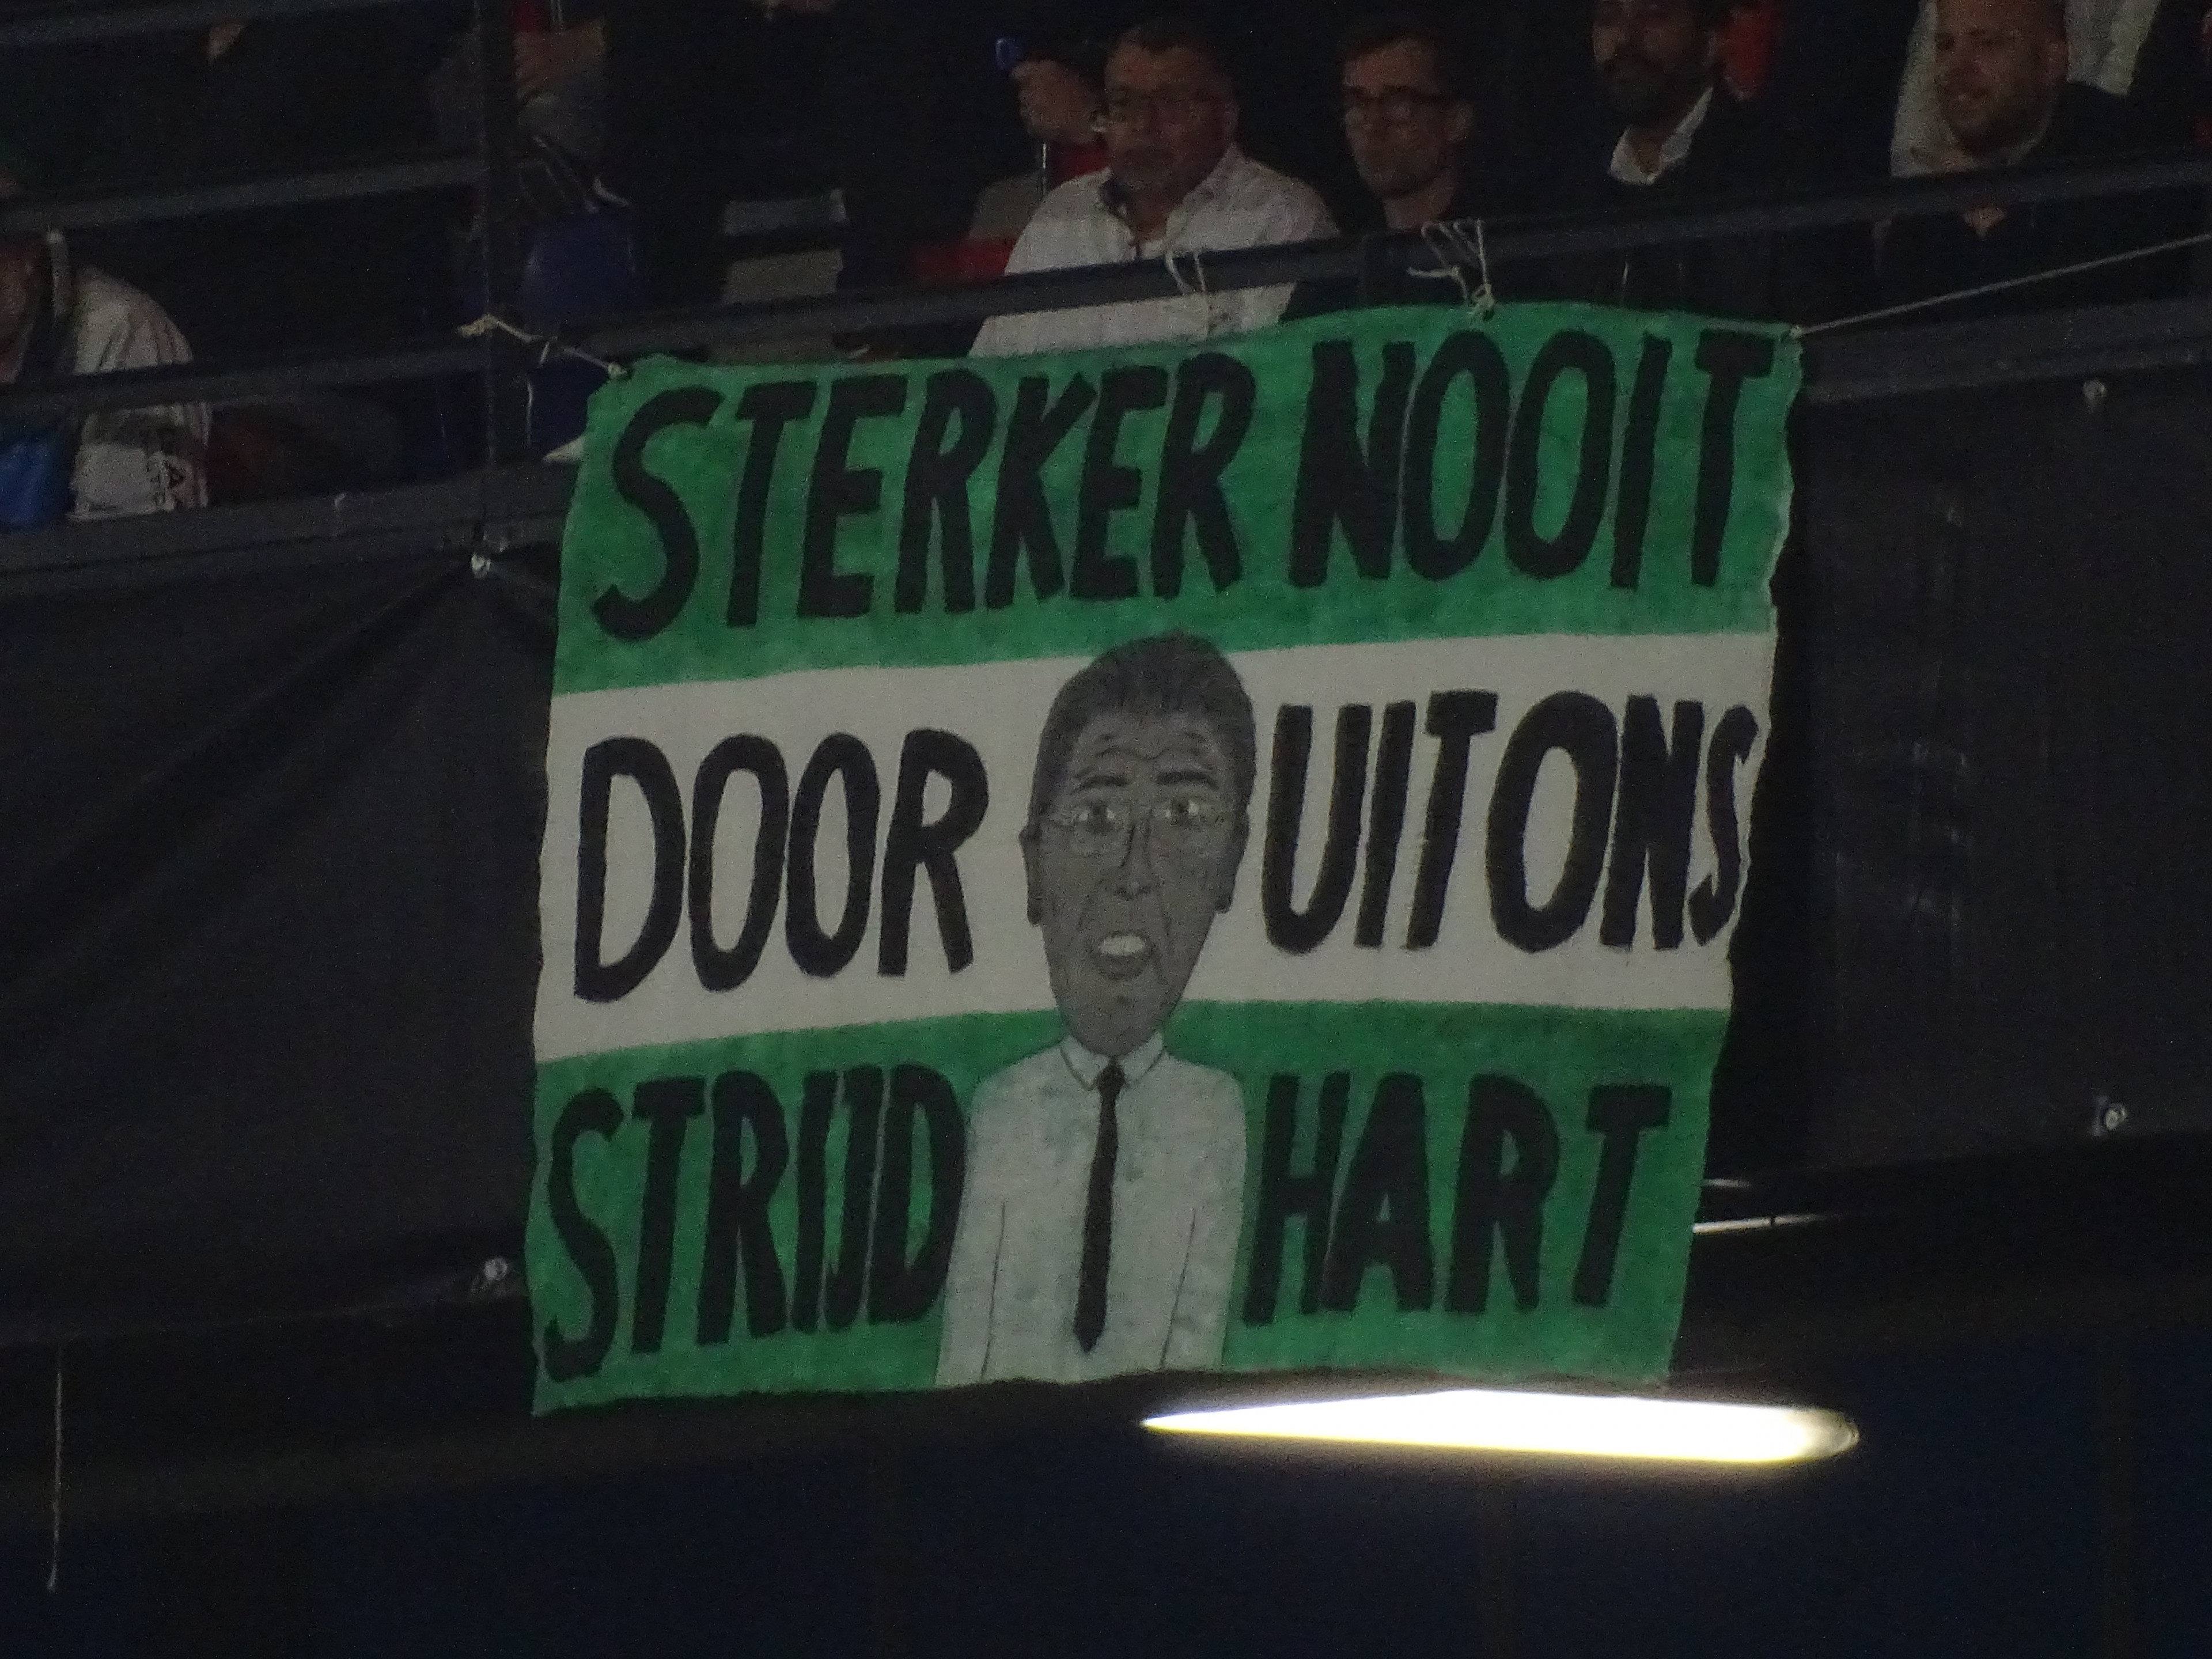 STERKER NOOIT
DOOR UIT ONS
STRIJD HART